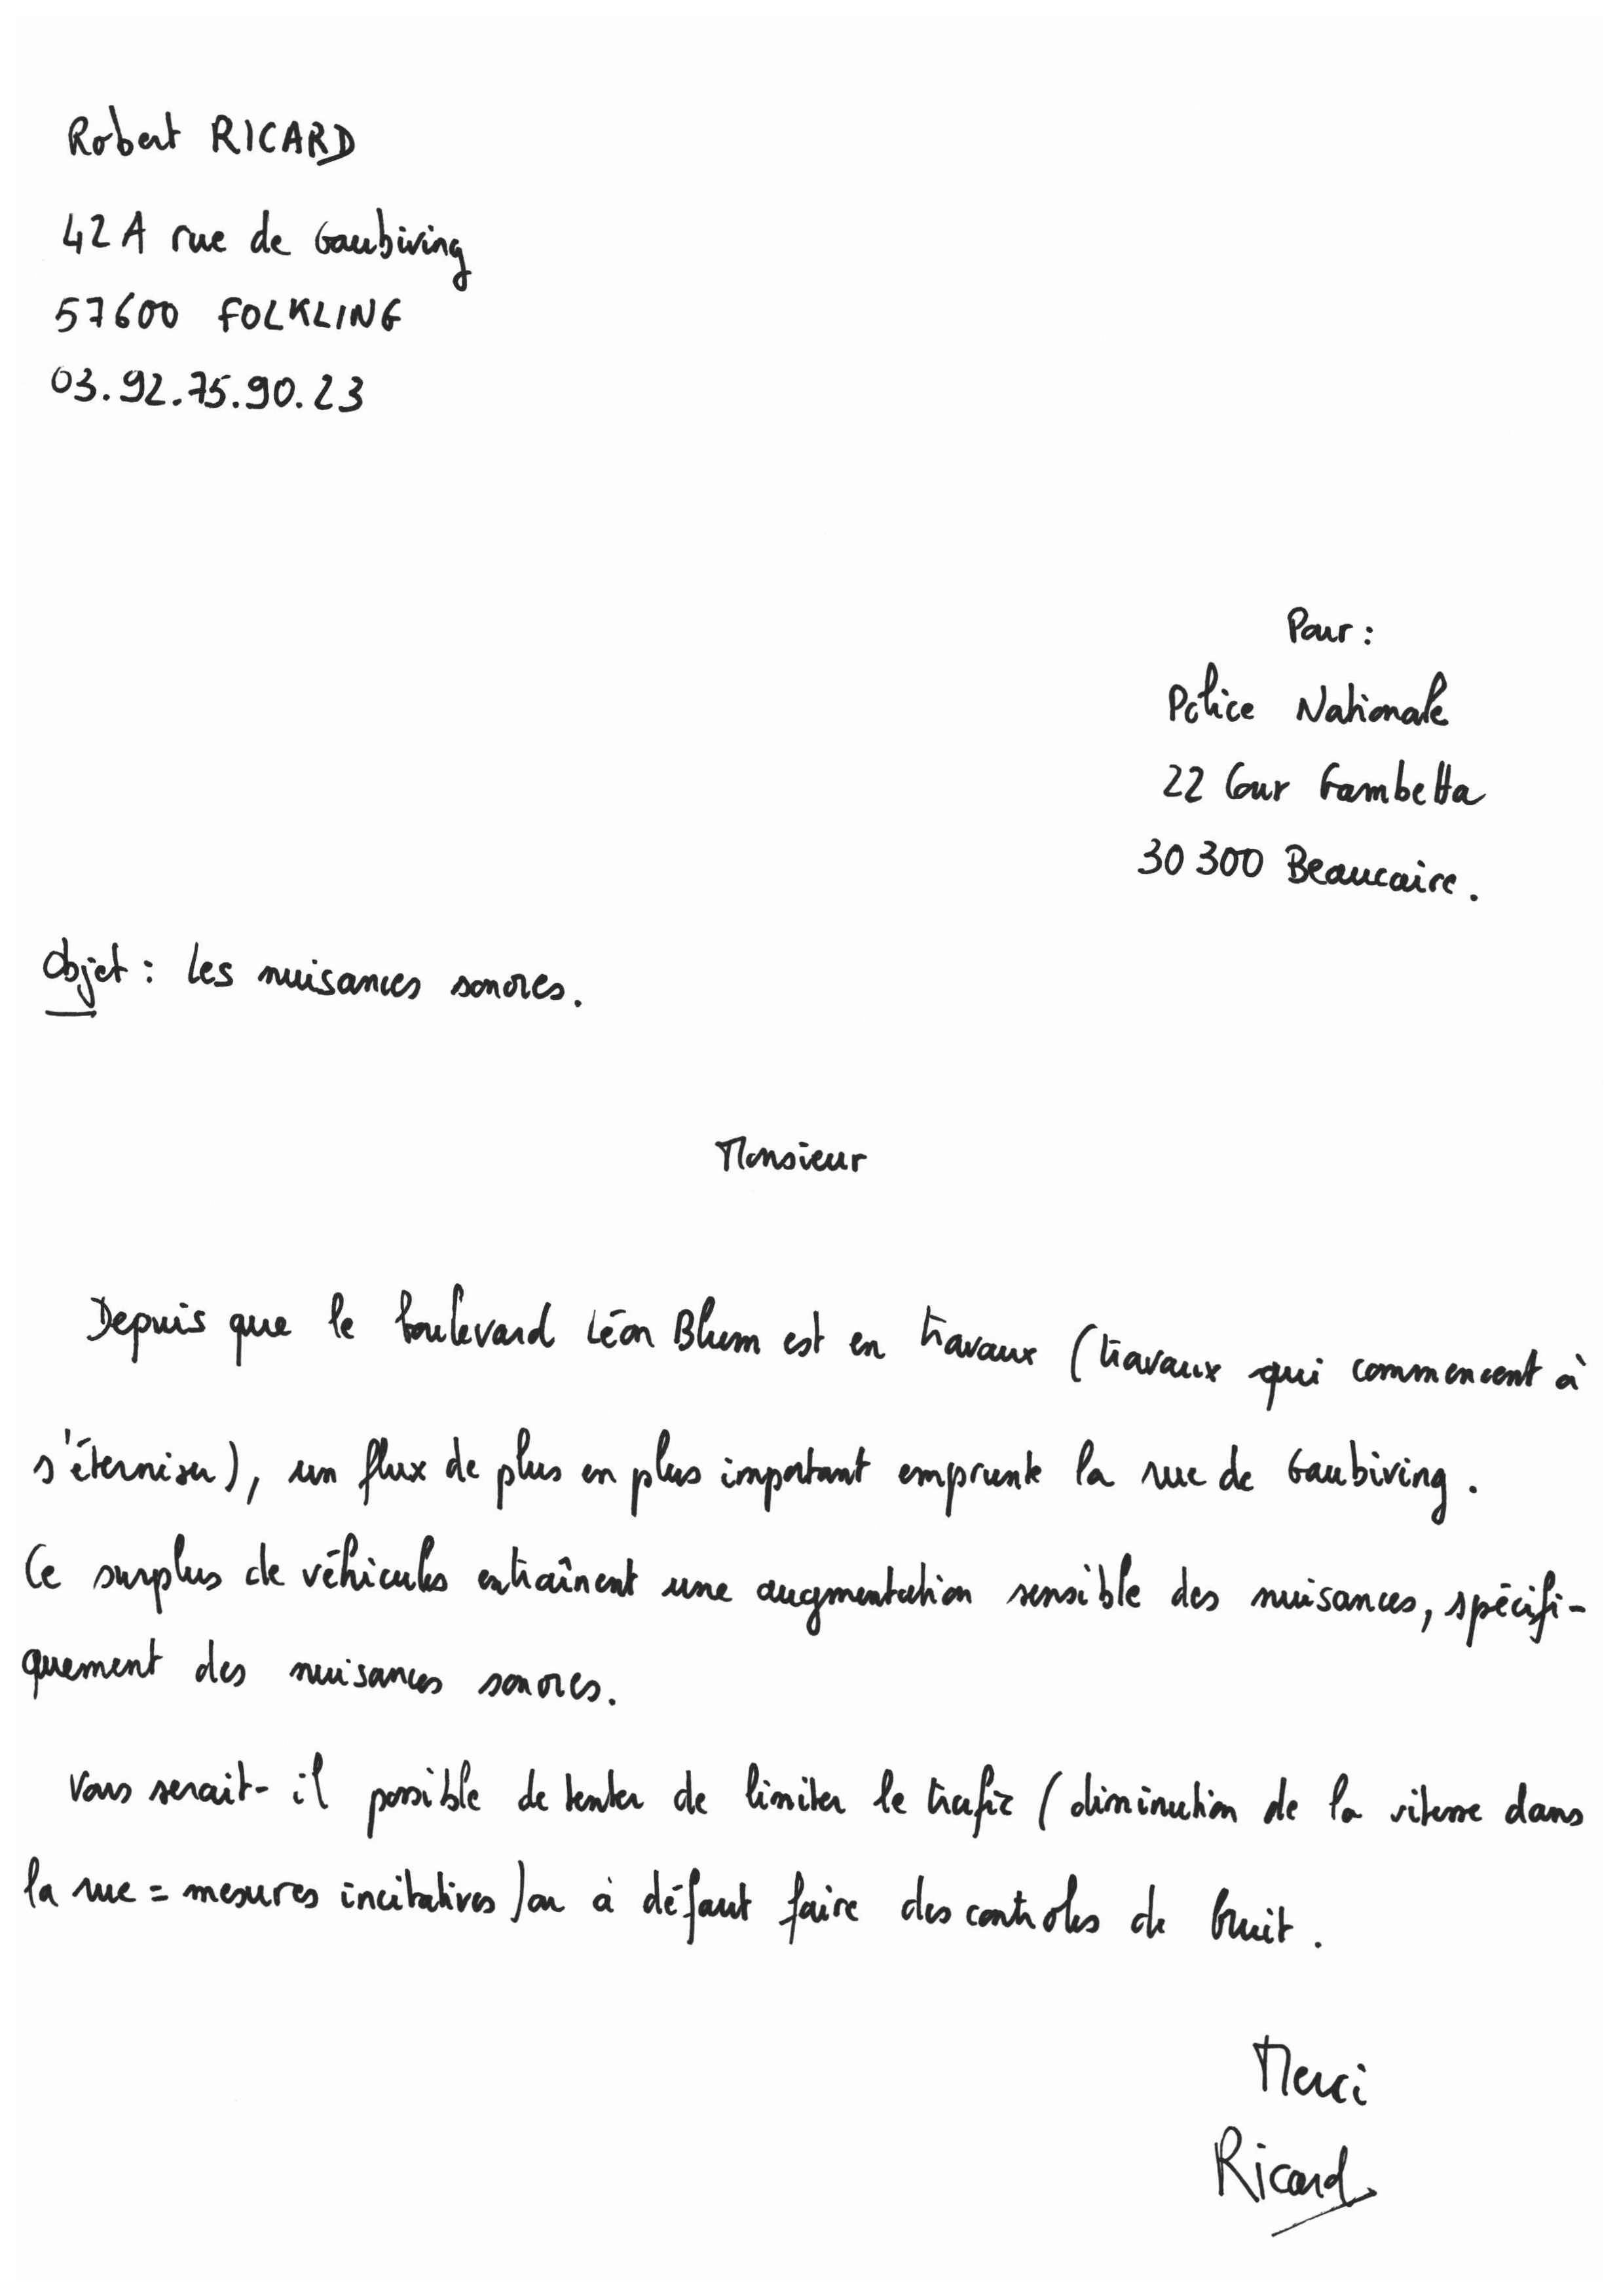 Robert RICARD
42 A rue de Gaubiving
57600 FOLKLING
03.92.75.90.23
Pour :
Police Nationale
22 Cour Gambetta
30 300 Beaucaire.
Objet : Les nuisances sonores.
Monsieur
Depuis que le boulevard Léon Blum est en travaux (travaux qui commencent à
s'éterniser), un flux de plus en plus important emprunte la rue de Gaubiving.
Ce surplus de véhicules entraînent une augmentation sensible des nuisances, spécifi-
quement des nuisances sonores.
Vous serait-il possible de tenter de limiter le trafic (diminution de la vitesse dans
la rue = mesures incitatives) ou à défaut faire des controles de bruit.
Merci
Ricard